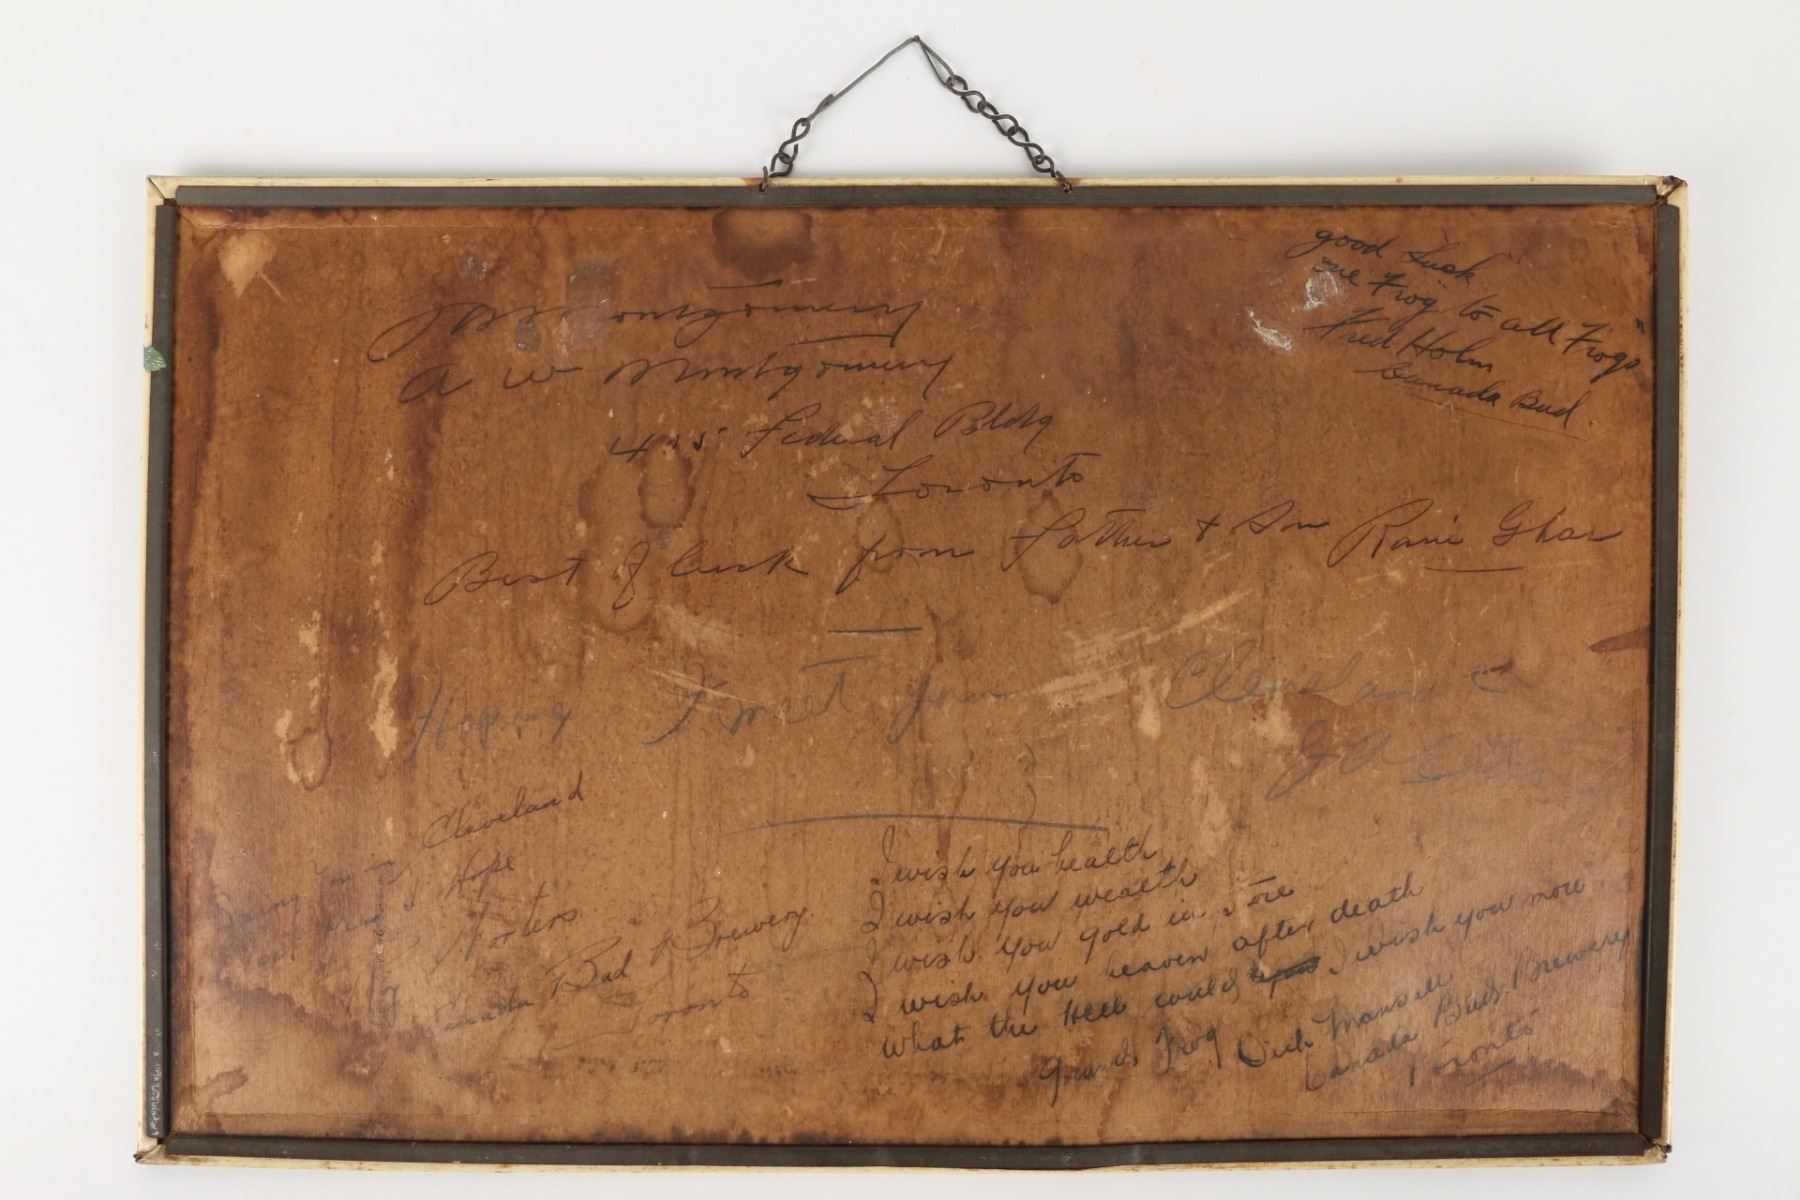 good Luck
"one Frog to all Frogs"
Fred Holm
Canada Bud.
Montgomery
A W Montgomery
Federal Bldg
Toronto
Best of luck from Father & Son Rami Ghar
Hoping I meet you Cleveland
G A
you in Cleveland
I Hope
Porters
Canada Bud Brewery
Toronto
I wish you health
I wish you wealth
I wish you gold in store
I wish you heaven after death
what the Hell could I wish you more
Grands Frog Dick Mansell
Canada Bud Brewery
Toronto